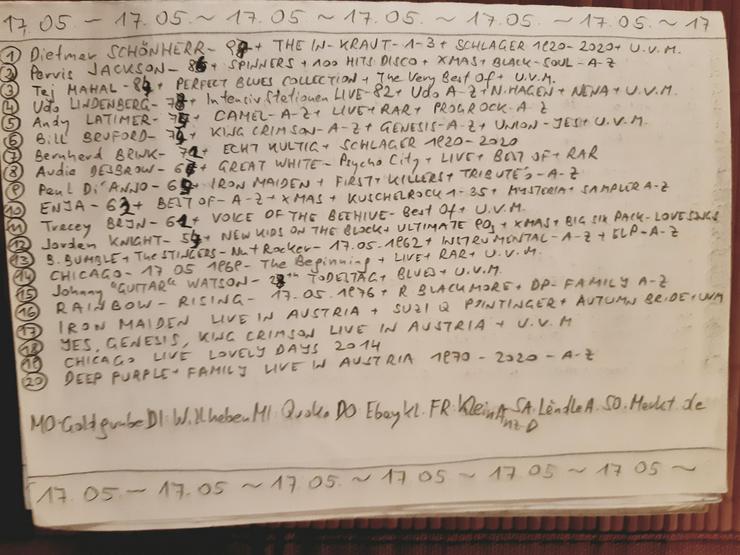 17.05. ~ 17.05. ~ 17.05. ~ 17.05. ~ 17.05. ~ 17.05. ~ 17
① Dietmar SCHÖNHERR - + THE IN-KRAUT-1-3 + SCHLAGER 1920-2020 + U.V.M.
② Pervis JACKSON - 86 + SPINNERS + 100 HITS DISCO + XMAS + BLACK-SOUL-A-Z
③ Taj MAHAL - 84 + PERFECT BLUES COLLECTION + The Very Best Of + U.V.M.
④ Udo LINDENBERG - + Intensiv Stationen LIVE-82 + Udo A-Z + N.HAGEN + NENA + U.V.M.
⑤ Andy LATIMER - + CAMEL-A-Z + LIVE + RAR + PROGROCK-A-Z
⑥ Bill BRUFORD - + KING CRIMSON-A-Z + GENESIS-A-Z + UNION-YES + U.V.M.
⑦ Bernhard BRINK - + ECHT KULTIG + SCHLAGER 1920-2020
⑧ Audie DESBROW - + GREAT WHITE - Psycho City + LIVE + BEST OF + RAR
⑨ Paul Di'ANNO - + IRON MAIDEN + FIRST + KILLERS + TRIBUTE'S-A-Z
⑩ ENJA - + BEST OF-A-Z + XMAS + KUSCHELROCK 1-35 + MYSTERIA + SAMPLER A-Z
⑪ Tracey BRYN - + VOICE OF THE BEEHIVE - Best Of + U.V.M.
⑫ Jorden KNIGHT - + NEW KIDS ON THE BLOCK + ULTIMATE 90s + XMAS + BIG SIX PACK-LOVESONGS
⑬ B. BUMBLE + The STINGERS - Nut Rocker - 17.05.1962 + INSTRUMENTAL-A-Z + ELP-A-Z
⑭ CHICAGO - 17 05 1969 - The Beginning + LIVE + RAR + U.V.M.
⑮ Johnny "GUITAR" WATSON - TODESTAG + BLUES + U.V.M.
⑯ RAINBOW - RISING - 17.05.1976 + R BLACKMORE + DP-FAMILY A-Z
⑰ IRON MAIDEN LIVE IN AUSTRIA + SUZI Q + AUTUMN BRIDE + UVM
⑱ YES, GENESIS, KING CRIMSON LIVE IN AUSTRIA + U.V.M
⑲ CHICAGO LIVE LOVELY DAYS 2014
⑳ DEEP PURPLE + FAMILY LIVE IN AUSTRIA 1970-2020-A-Z
MO. Goldgrube DI W.Ilheben MI Quoka DO Ebaykl. FR. KleinAnz D SA. LändleA. SO. Markt.de
17.05 ~ 17.05 ~ 17.05 ~ 17.05 ~ 17.05 ~ 17.05 ~